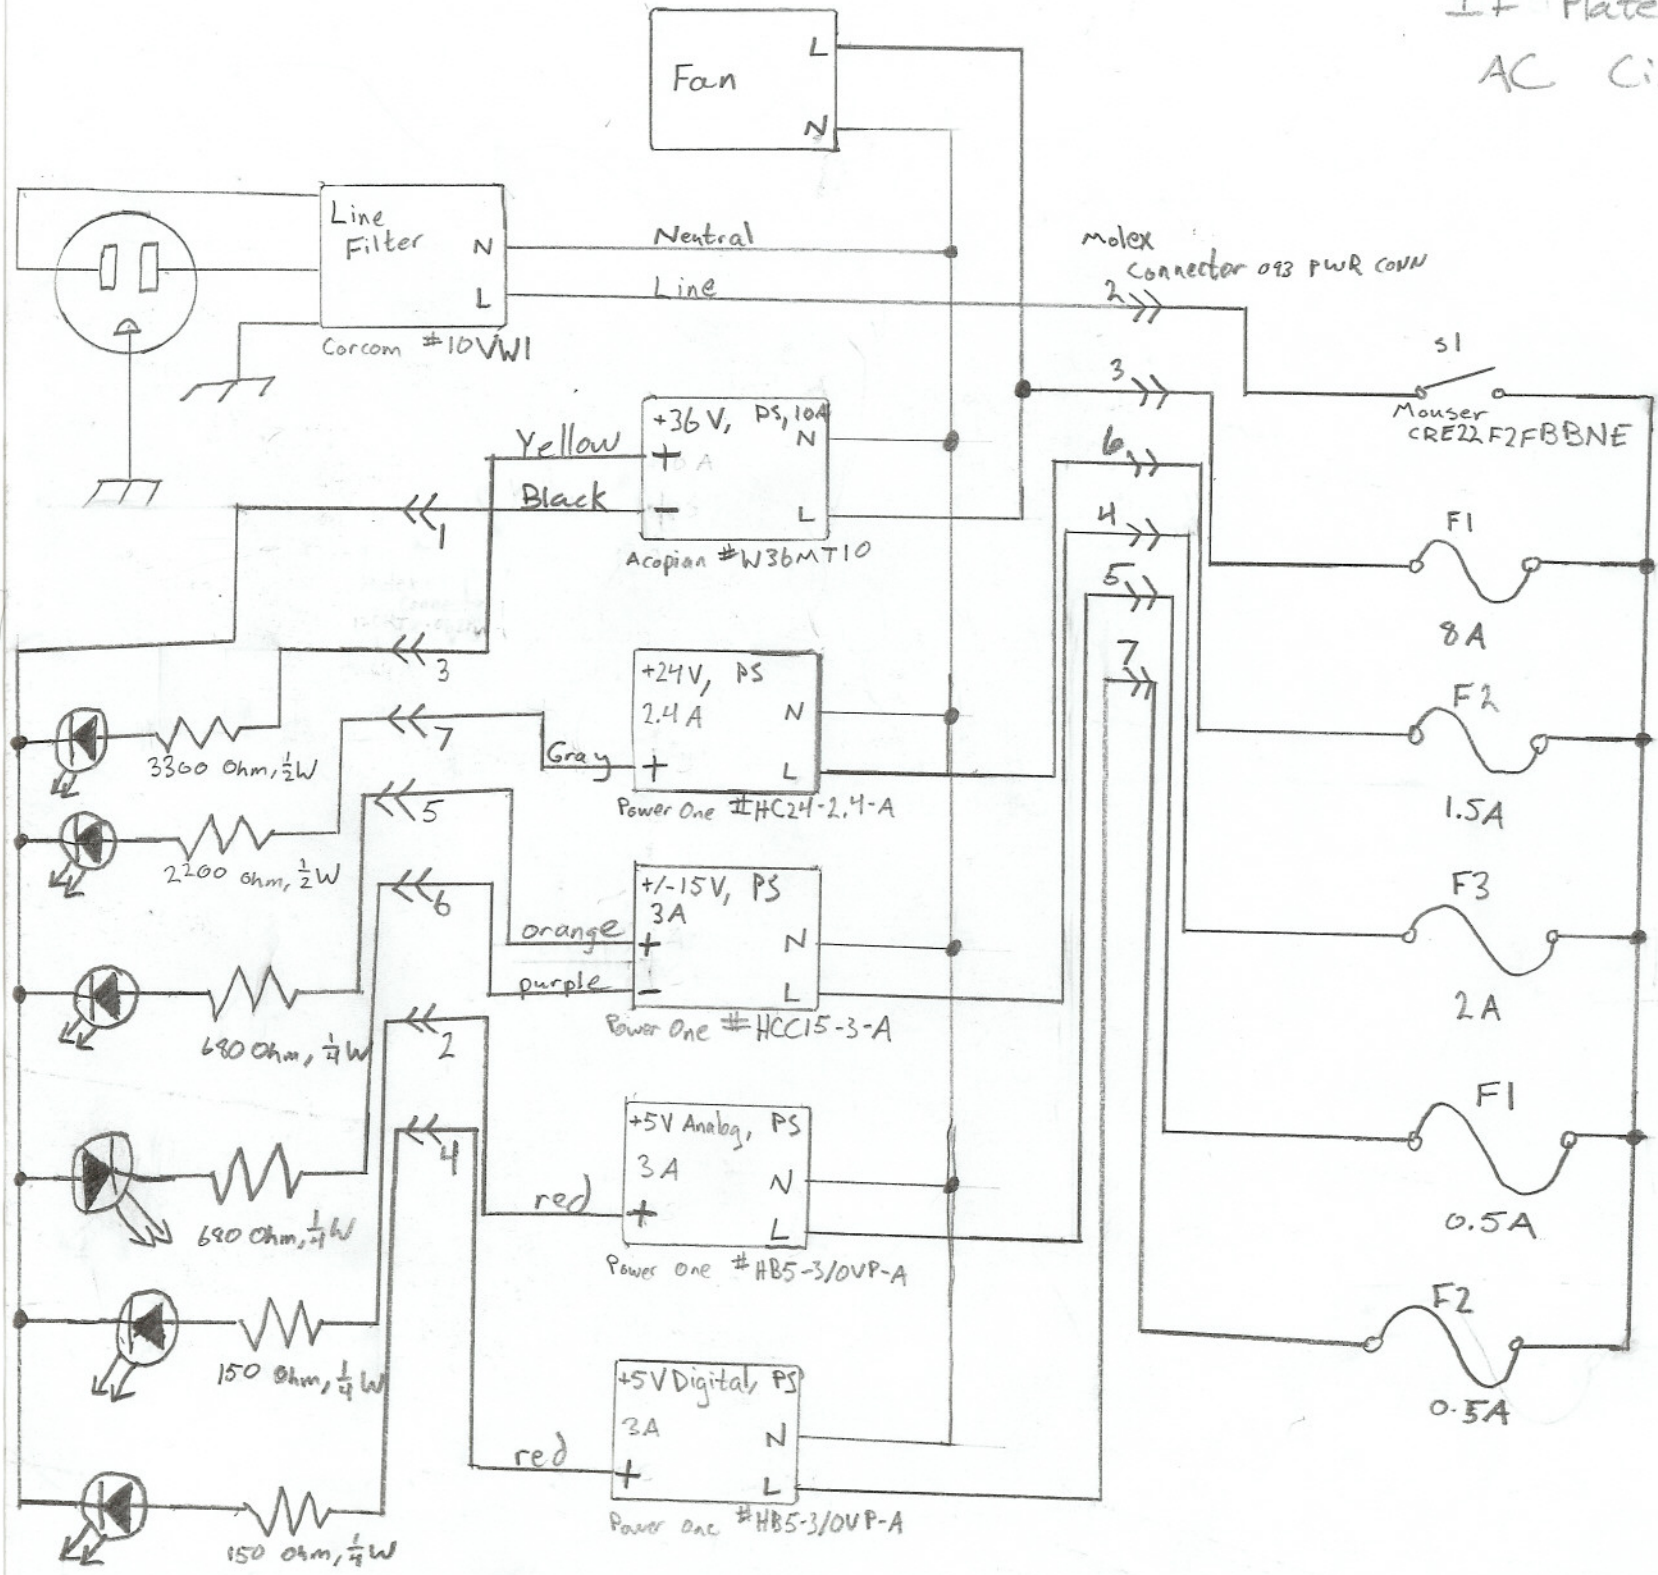 IF Plate
AC Ci
Fan
L
N
Line
Filter
N
L
Corcom #10VW1
Neutral
Line
Molex
Connector 093 PWR CONN
2
3
6
4
5
7
S1
Mouser
CRE22F2FBBNE
F1
8A
F2
1.5A
F3
2A
F1
0.5A
F2
0.5A
Yellow
Black
+36V, PS, 10A
N
+
-
L
Acopian #W36MT10
1
3
7
5
6
2
4
+24V, PS
2.4A
N
Gray
+
L
Power One #HC24-2.4-A
+/-15V, PS
3A
orange
+
N
purple
-
L
Power One #HCC15-3-A
+5V Analog, PS
3A
N
red
+
L
Power One #HB5-3/OVP-A
+5V Digital, PS
3A
N
red
+
L
Power One #HB5-3/OVP-A
3300 Ohm, 1/2W
2200 Ohm, 1/2W
680 Ohm, 1/4W
680 Ohm, 1/4W
150 Ohm, 1/4W
150 Ohm, 1/4W